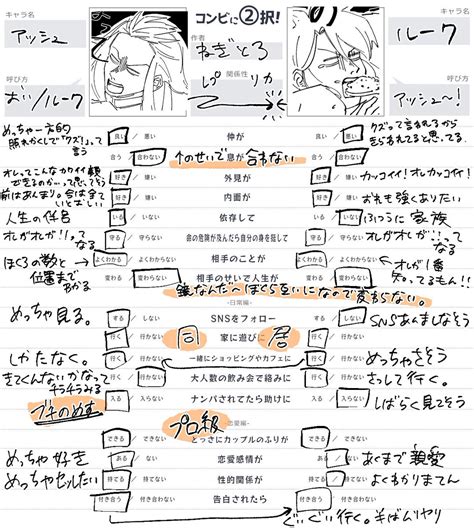 キャラ名
アッシュ
呼び方
おい/ルーク
コンビに②択!
作者
ねぎとろ
関係性
レプリカ
キャラ名
ルーク
呼び方
アッシュ〜!
めっちゃ一方的
照れかくしで「クズ!」って言う
良い / 悪い
仲が
良い / 悪い
クズって言われるから
きらわれてると思ってる。
合う / 合わない
↑のせいで息が合わない
合う / 合わない
オレってこんなカワイイ顔
好き / 嫌い
外見が
好き / 嫌い
カッコイイ!オレカッコイイ!
好き / 嫌い
内面が
好き / 嫌い
おれも強くありたい
人生の係名
いる / いない
依存して
いる / いない
ふつうに家族
オレがオレが!!ってなる
守る / 守らない
命の危険が及んだら自分の身を挺して
守る / 守らない
オレがオレが!!ってなる
ほくろの数と
位置まで
わかる
よくわかる / わからない
相手のことが
よくわかる / わからない
オレが1番
知ってるもん!!
変わる / 変わらない
相手のせいで人生が
変わる / 変わらない
鏡なんだ〜ぼくら互いになので変わらない。
-日常編-
めっちゃ見る。
する / しない
SNSをフォロー
する / しない
SNSあんましなそう
行く / 行かない
同
家に遊びに
居
行く / 行かない
しかたなく。
行く / 行かない
一緒にショッピングやカフェに
行く / 行かない
めっちゃさそう
きてくんないかなって
チラチラみる
行く / 行かない
大人数の飲み会で絡みに
行く / 行かない
さっして行く。
ブチのめす
入る / 入らない
ナンパされてたら助けに
入る / 入らない
しばらく見てそう
プロ級
-恋愛編-
できる / できない
とっさにカップルのふりが
できる / できない
めっちゃ好き
ある / ない
恋愛感情が
ある / ない
あくまで親愛
めっちゃセルしたい
持てる / 持てない
性的関係が
持てる / 持てない
よくわかりません
付き合う / 付き合わない
告白されたら
付き合う / 付き合わない
ぐいぐい行く。そばんリヤリ